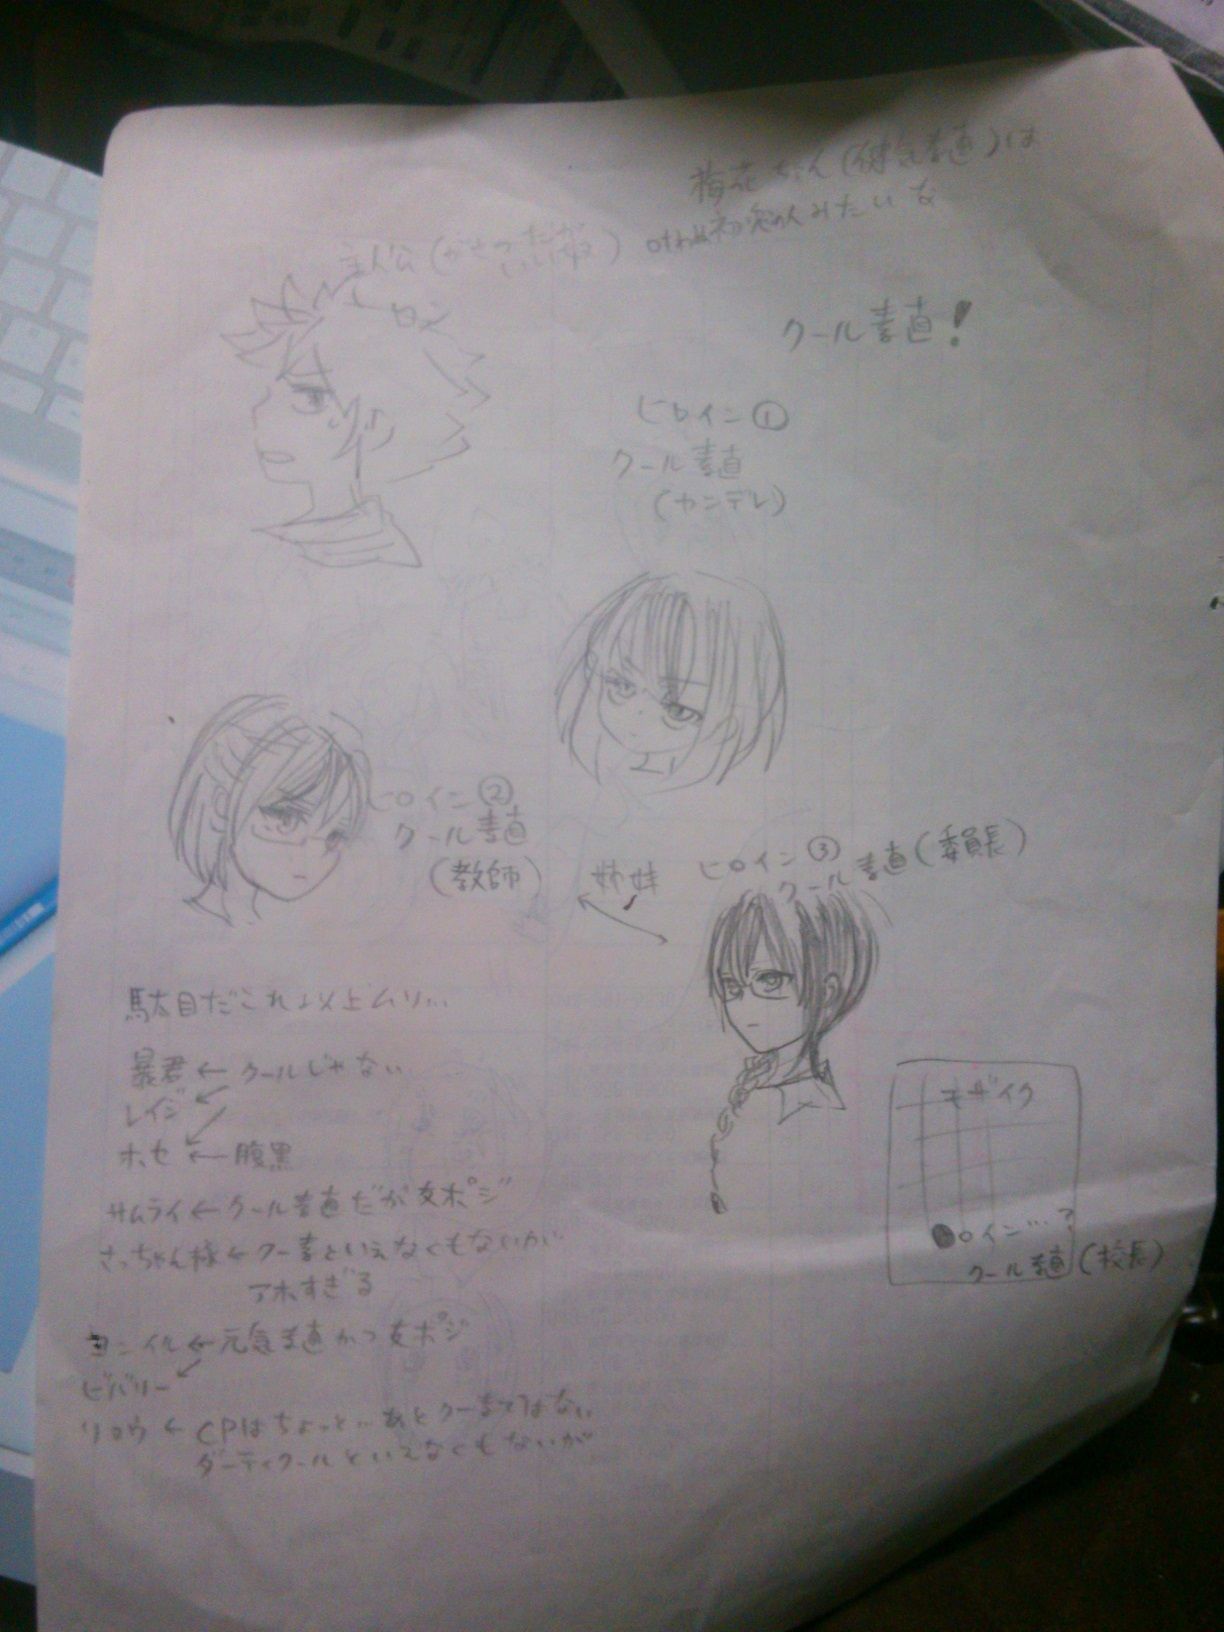 梅花ちゃん(健気素直)は
初恋の人みたいな
主人公(がさつだが
いい奴)
ロン
クール素直!
ヒロイン①
クール素直
(ヤンデレ)
ヒロイン②
クール素直
(教師)
姉妹
ヒロイン③
クール素直(委員長)
駄目だこれ以上ムリ…
暴君←クールじゃない
レイジ
ホセ←腹黒
サムライ←クール素直だが女ポジ
さっちゃん様←クー素といえなくもないが
アホすぎる
ヨンイル←元気素直かつ女ポジ
ビバリー
リロウ←CPはちょっと…あとクー素ではない
ダーティクールといえなくもないが
モザイク
ロイン…?
クール素直(校長)